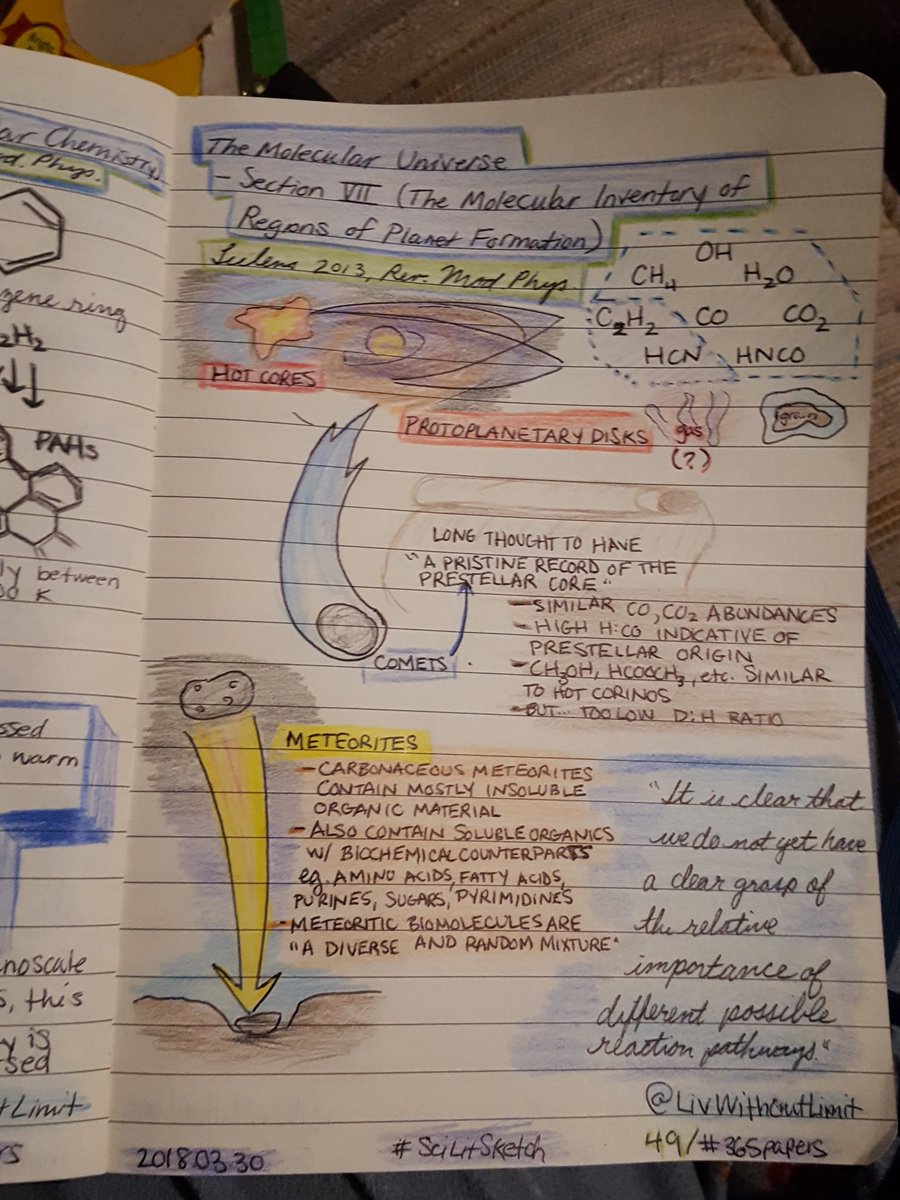 ar Chemistry)
od. Phys.
zene ring
2H2
PAHs
ly between
00 K
ssed
warm
noscale
s, this
y is
sed
tLimit
rs
The Molecular Universe
- Section VII (The Molecular Inventory of
Regions of Planet Formation)
Tielens 2013, Rev. Mod Phys.
OH
CH4 H2O
C2H2 CO CO2
HCN HNCO
HOT CORES
PROTOPLANETARY DISKS
gas
(?)
grain
LONG THOUGHT TO HAVE
"A PRISTINE RECORD OF THE
PRESTELLAR CORE"
- SIMILAR CO, CO2 ABUNDANCES
- HIGH H2CO INDICATIVE OF
PRESTELLAR ORIGIN
- CH3OH, HCOOCH3, etc. SIMILAR
TO HOT CORINOS
- BUT... TOO LOW D:H RATIO
COMETS
METEORITES
- CARBONACEOUS METEORITES
CONTAIN MOSTLY INSOLUBLE
ORGANIC MATERIAL
- ALSO CONTAIN SOLUBLE ORGANICS
W/ BIOCHEMICAL COUNTERPARTS
eg. AMINO ACIDS, FATTY ACIDS,
PURINES, SUGARS, PYRIMIDINES
- METEORITIC BIOMOLECULES ARE
"A DIVERSE AND RANDOM MIXTURE"
"It is clear that
we do not yet have
a clear grasp of
the relative
importance of
different possible
reaction pathways."
@LivWithoutLimit
2018.03.30
#SciLitSketch
49/#365papers